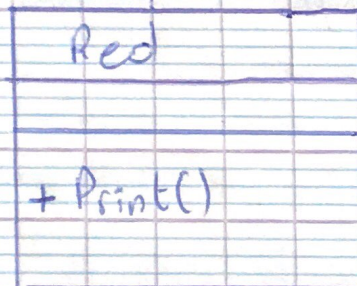 Red
+ Print()